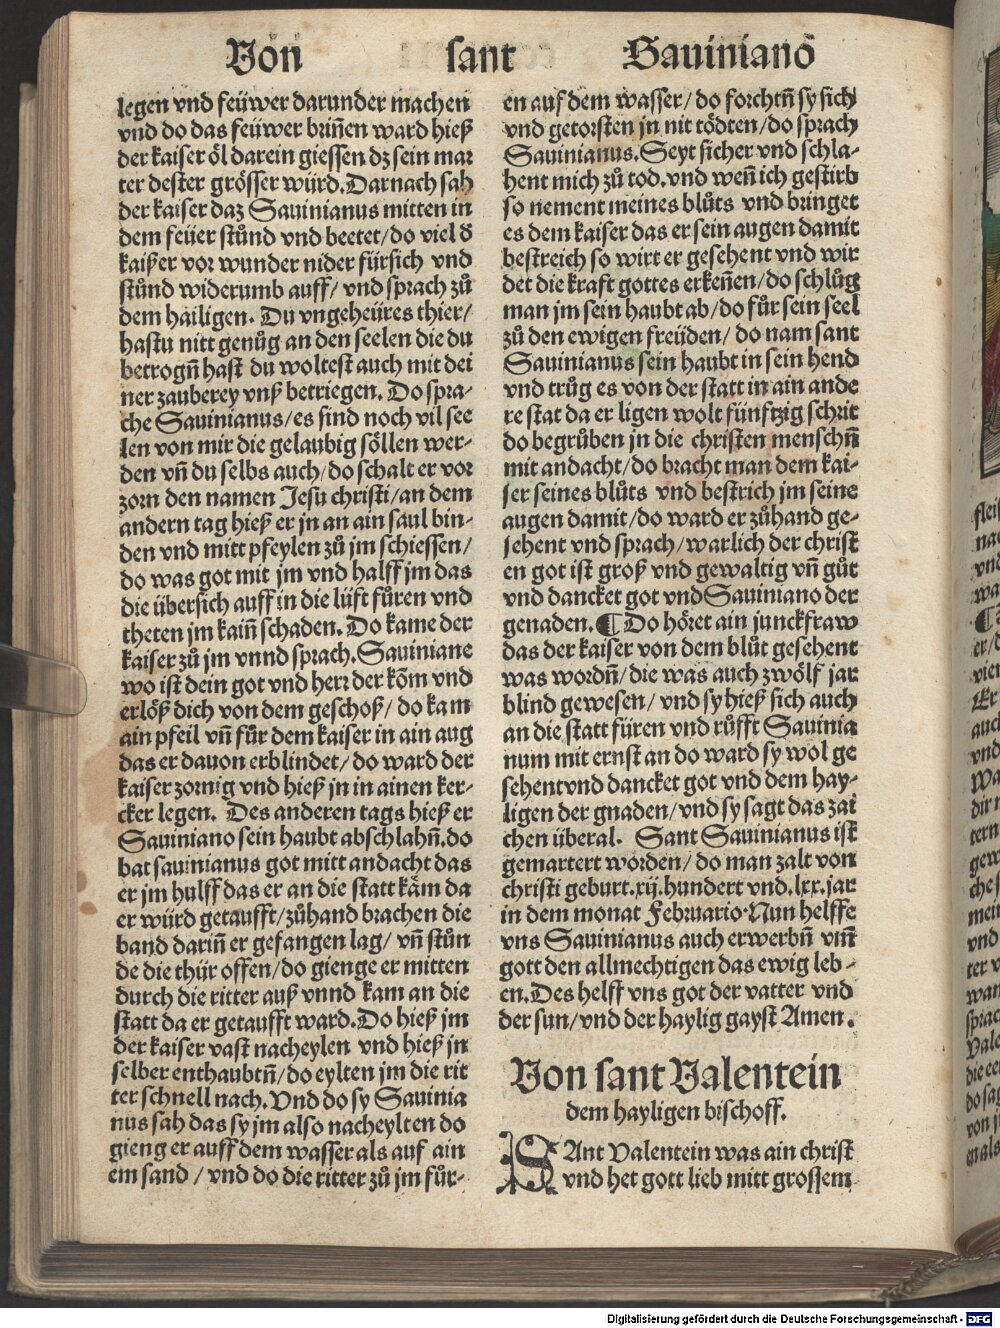 Von sant Sauiniano
legen vnd feüwer darunder machen
vnd do das feüwer briñen ward hieß
der kaiser öl darein giessen dz sein mar
ter dester grösser würd. Darnach sah
der kaiser daz Sauinianus mitten in
dem feüer stůnd vnd beetet/do viel ð
kaißer vor wunder nider fürsich vnd
stůnd widerumb auff/ vnd sprach zů
dem häiligen. Du vngeheüres thier/
hastu nitt genůg an den seelen die du
betrogñ hast du woltest auch mit dei
ner zauberey vnß betriegen. Do spra-
che Sauinianus/es sind noch vil see
len von mir die gelaubig söllen wer-
den vñ du selbs auch/do schalt er vor
zorn den namen Jesu christi/an dem
andern tag hieß er jn an ain saul bin-
den vnd mitt pfeylen zů jm schiessen/
do was got mit jm vnd halff jm das
die übersich auff in die lüft fůren vnd
theten jm kaiñ schaden. Do kame der
kaiser zů jm vnnd sprach. Sauiniane
wo ist dein got vnd herr der köm vnd
erlöß dich von dem geschoß/do kam
ain pfeil vñ fůr dem kaiser in ain aug
das er dauon erblindet/do ward der
kaiser zornig vnd hieß jn in ainen ker-
cker legen. Des anderen tags hieß er
Sauiniano sein haubt abschlahñ.do
bat sauinianus got mitt andacht das
er jm hulff das er an die statt käm da
er würd getaufft/zůhand brachen die
band dariñ er gefangen lag/ vñ stůn
de die thür offen/do gienge er mitten
durch die ritter auß vnnd kam an die
statt da er getaufft ward. Do hieß jm
der kaiser vast nacheylen vnd hieß jn
selber enthaubtñ/do eylten jm die rit
ter schnell nach. Vnd do sy Sauinia
nus sah das sy jm also nacheylten do
gieng er auff dem wasser als auf ain
em sand / vnd do die ritter zů jm fůr-
en auf dem wasser/do forchtñ sy sich
vnd getorsten jn nit tödten/do sprach
Sauinianus. Seyt sicher vnd schla-
hent mich zů tod. vnd weñ ich gestirb
so nement meines blůts vnd bringet
es dem kaiser das er sein augen damit
bestreich so wirt er gesehent vnd wir
det die kraft gottes erkeñen/do schlůg
man jm sein haubt ab/do fůr sein seel
zů den ewigen freüden/ do nam sant
Sauinianus sein haubt in sein hend
vnd trůg es von der statt in ain ande
re stat da er ligen wolt fünftzig schrit
do begrůben jn die christen menschñ
mit andacht/do bracht man dem kai-
ser seines blůts vnd bestrich jm seine
augen damit/do ward er zůhand ge-
sehent vnd sprach/warlich der christ
en got ist groß vnd gewaltig vñ gůt
vnd dancket got vnd Sauiniano der
genaden. ¶ Do höret ain junckfraw
das der kaiser von dem blůt gesehent
was wordñ/die was auch zwölf jar
blind gewesen/ vnd sy hieß sich auch
an die statt füren vnd růfft Sauinia
num mit ernst an do ward sy wol ge
sehent vnd dancket got vnd dem hay-
ligen der gnaden/vnd sy sagt das zai
chen überal. Sant Sauinianus ist
gemartert worden/do man zalt von
christi geburt.xij.hundert vnd.lxx.jar
in dem monat Februario·Nun helffe
vns Sauinianus auch erwerbñ vm̃
gott den allmechtigen das ewig leb-
en. Des helff vns got der vatter vnd
der sun/vnd der haylig gayst Amen.
Von sant Valentein
dem hayligen bischoff.
SAnt Valentein was ain christ
vnd het gott lieb mitt grossem
Digitalisierung gefördert durch die Deutsche Forschungsgemeinschaft - DFG